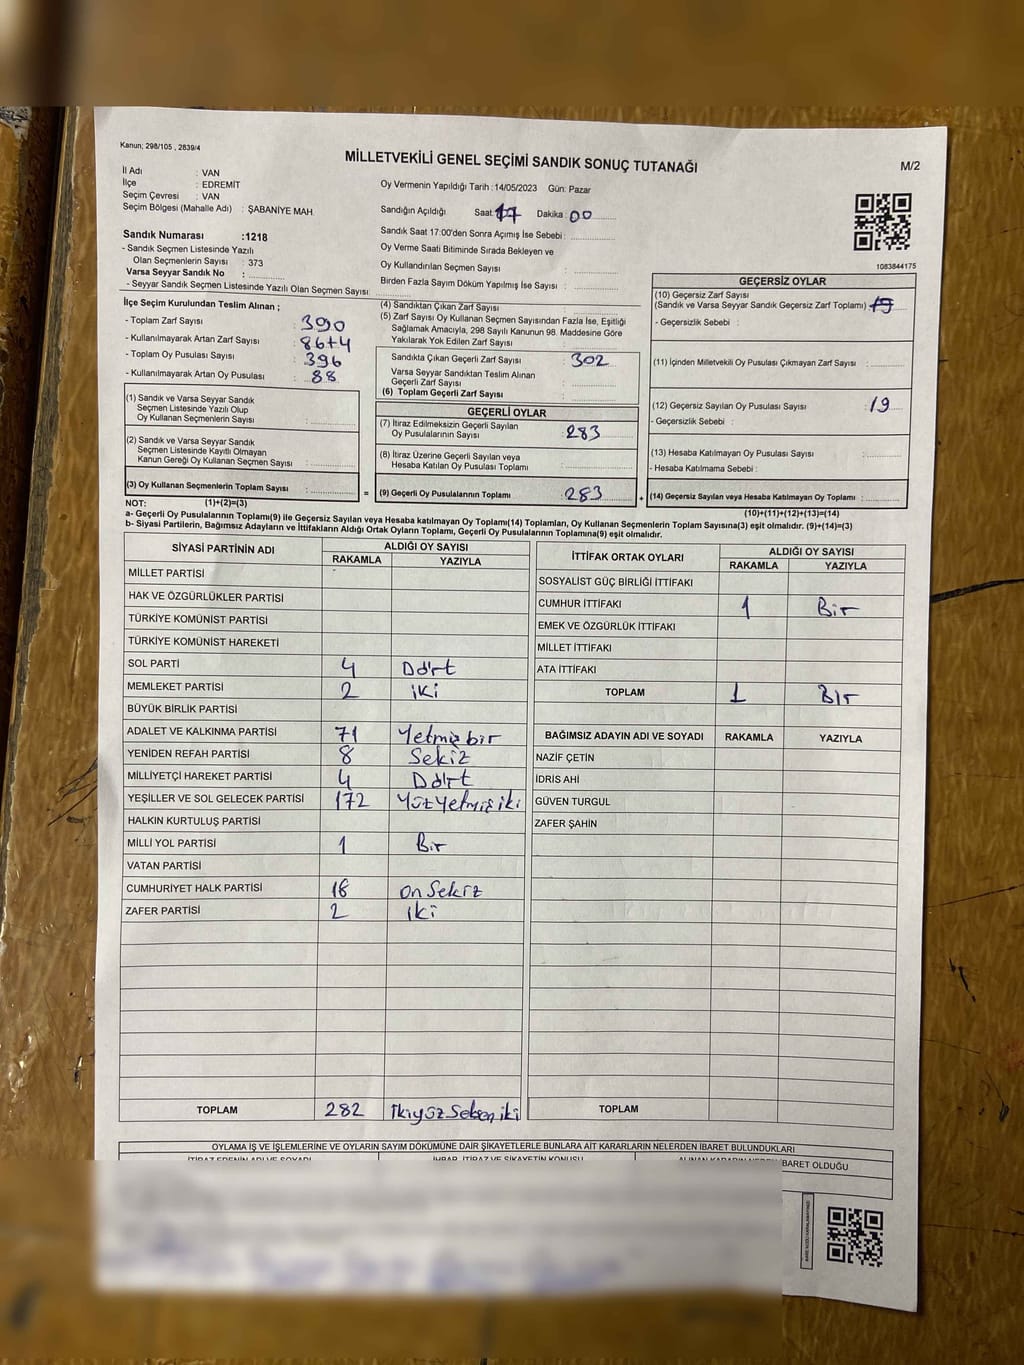 Kanun; 298/105 , 2839/4
MİLLETVEKİLİ GENEL SEÇİMİ SANDIK SONUÇ TUTANAĞI
M/2
İl Adı : VAN
İlçe : EDREMIT
Seçim Çevresi : VAN
Seçim Bölgesi (Mahalle Adı) : ŞABANİYE MAH
Oy Vermenin Yapıldığı Tarih : 14/05/2023 Gün: Pazar
Sandığın Açıldığı Saat: 17 Dakika : 00
Sandık Saat 17:00'den Sonra Açımış İse Sebebi :
Oy Verme Saati Bitiminde Sırada Bekleyen ve
Oy Kullandırılan Seçmen Sayısı :
Birden Fazla Sayım Döküm Yapılmış İse Sayısı :
Sandık Numarası :1218
- Sandık Seçmen Listesinde Yazılı
Olan Seçmenlerin Sayısı : 373
Varsa Seyyar Sandık No :
- Seyyar Sandık Seçmen Listesinde Yazılı Olan Seçmen Sayısı :
1083844175
İlçe Seçim Kurulundan Teslim Alınan ;
- Toplam Zarf Sayısı : 390
- Kullanılmayarak Artan Zarf Sayısı : 86+4
- Toplam Oy Pusulası Sayısı : 396
- Kullanılmayarak Artan Oy Pusulası : 88
(1) Sandık ve Varsa Seyyar Sandık
Seçmen Listesinde Yazılı Olup
Oy Kullanan Seçmenlerin Sayısı :
(2) Sandık ve Varsa Seyyar Sandık
Seçmen Listesinde Kayıtlı Olmayan
Kanun Gereği Oy Kullanan Seçmen Sayısı :
(3) Oy Kullanan Seçmenlerin Toplam Sayısı :
(4) Sandıktan Çıkan Zarf Sayısı :
(5) Zarf Sayısı Oy Kullanan Seçmen Sayısından Fazla İse, Eşitliği
Sağlamak Amacıyla, 298 Sayılı Kanunun 98. Maddesine Göre
Yakılarak Yok Edilen Zarf Sayısı :
Sandıkta Çıkan Geçerli Zarf Sayısı : 302
Varsa Seyyar Sandıktan Teslim Alınan
Geçerli Zarf Sayısı :
(6) Toplam Geçerli Zarf Sayısı :
GEÇERLİ OYLAR
(7) İtiraz Edilmeksizin Geçerli Sayılan
Oy Pusulalarının Sayısı : 283
(8) İtiraz Üzerine Geçerli Sayılan veya
Hesaba Katılan Oy Pusulası Toplamı :
= (9) Geçerli Oy Pusulalarının Toplamı : 283
GEÇERSİZ OYLAR
(10) Geçersiz Zarf Sayısı
(Sandık ve Varsa Seyyar Sandık Geçersiz Zarf Toplamı) : 19
- Geçersizlik Sebebi :
(11) İçinden Milletvekili Oy Pusulası Çıkmayan Zarf Sayısı :
(12) Geçersiz Sayılan Oy Pusulası Sayısı : 19
- Geçersizlik Sebebi :
(13) Hesaba Katılmayan Oy Pusulası Sayısı :
- Hesaba Katılmama Sebebi :
+ (14) Geçersiz Sayılan veya Hesaba Katılmayan Oy Toplamı :
NOT: (1)+(2)=(3)
(10)+(11)+(12)+(13)=(14)
a- Geçerli Oy Pusulalarının Toplamı(9) ile Geçersiz Sayılan veya Hesaba katılmayan Oy Toplamı(14) Toplamları, Oy Kullanan Seçmenlerin Toplam Sayısına(3) eşit olmalıdır. (9)+(14)=(3)
b- Siyasi Partilerin, Bağımsız Adayların ve İttifakların Aldığı Ortak Oyların Toplamı, Geçerli Oy Pusulalarının Toplamına(9) eşit olmalıdır.
SİYASİ PARTİNİN ADI
ALDIĞI OY SAYISI
RAKAMLA YAZIYLA
MİLLET PARTİSİ
HAK VE ÖZGÜRLÜKLER PARTİSİ
TÜRKİYE KOMÜNİST PARTİSİ
TÜRKİYE KOMÜNİST HAREKETİ
SOL PARTİ 4 Dört
MEMLEKET PARTİSİ 2 iki
BÜYÜK BİRLİK PARTİSİ
ADALET VE KALKINMA PARTİSİ 71 Yetmiş bir
YENİDEN REFAH PARTİSİ 8 Sekiz
MİLLİYETÇİ HAREKET PARTİSİ 4 Dört
YEŞİLLER VE SOL GELECEK PARTİSİ 172 Yüz Yetmiş iki
HALKIN KURTULUŞ PARTİSİ
MİLLİ YOL PARTİSİ 1 Bir
VATAN PARTİSİ
CUMHURİYET HALK PARTİSİ 18 on Sekiz
ZAFER PARTİSİ 2 iki
TOPLAM 282 ikiyüz Seksen iki
İTTİFAK ORTAK OYLARI
ALDIĞI OY SAYISI
RAKAMLA YAZIYLA
SOSYALİST GÜÇ BİRLİĞİ İTTİFAKI
CUMHUR İTTİFAKI 1 Bir
EMEK VE ÖZGÜRLÜK İTTİFAKI
MİLLET İTTİFAKI
ATA İTTİFAKI
TOPLAM 1 Bir
BAĞIMSIZ ADAYIN ADI VE SOYADI RAKAMLA YAZIYLA
NAZİF ÇETİN
İDRİS AHİ
GÜVEN TURGUL
ZAFER ŞAHİN
TOPLAM
OYLAMA İŞ VE İŞLEMLERİNE VE OYLARIN SAYIM DÖKÜMÜNE DAİR ŞİKAYETLERLE BUNLARA AİT KARARLARIN NELERDEN İBARET BULUNDUKLARI
İTİRAZ EDENİN ADI VE SOYADI İHBAR, İTİRAZ VE ŞİKAYETİN KONUSU ALINAN KARARIN NEDEN İBARET OLDUĞU